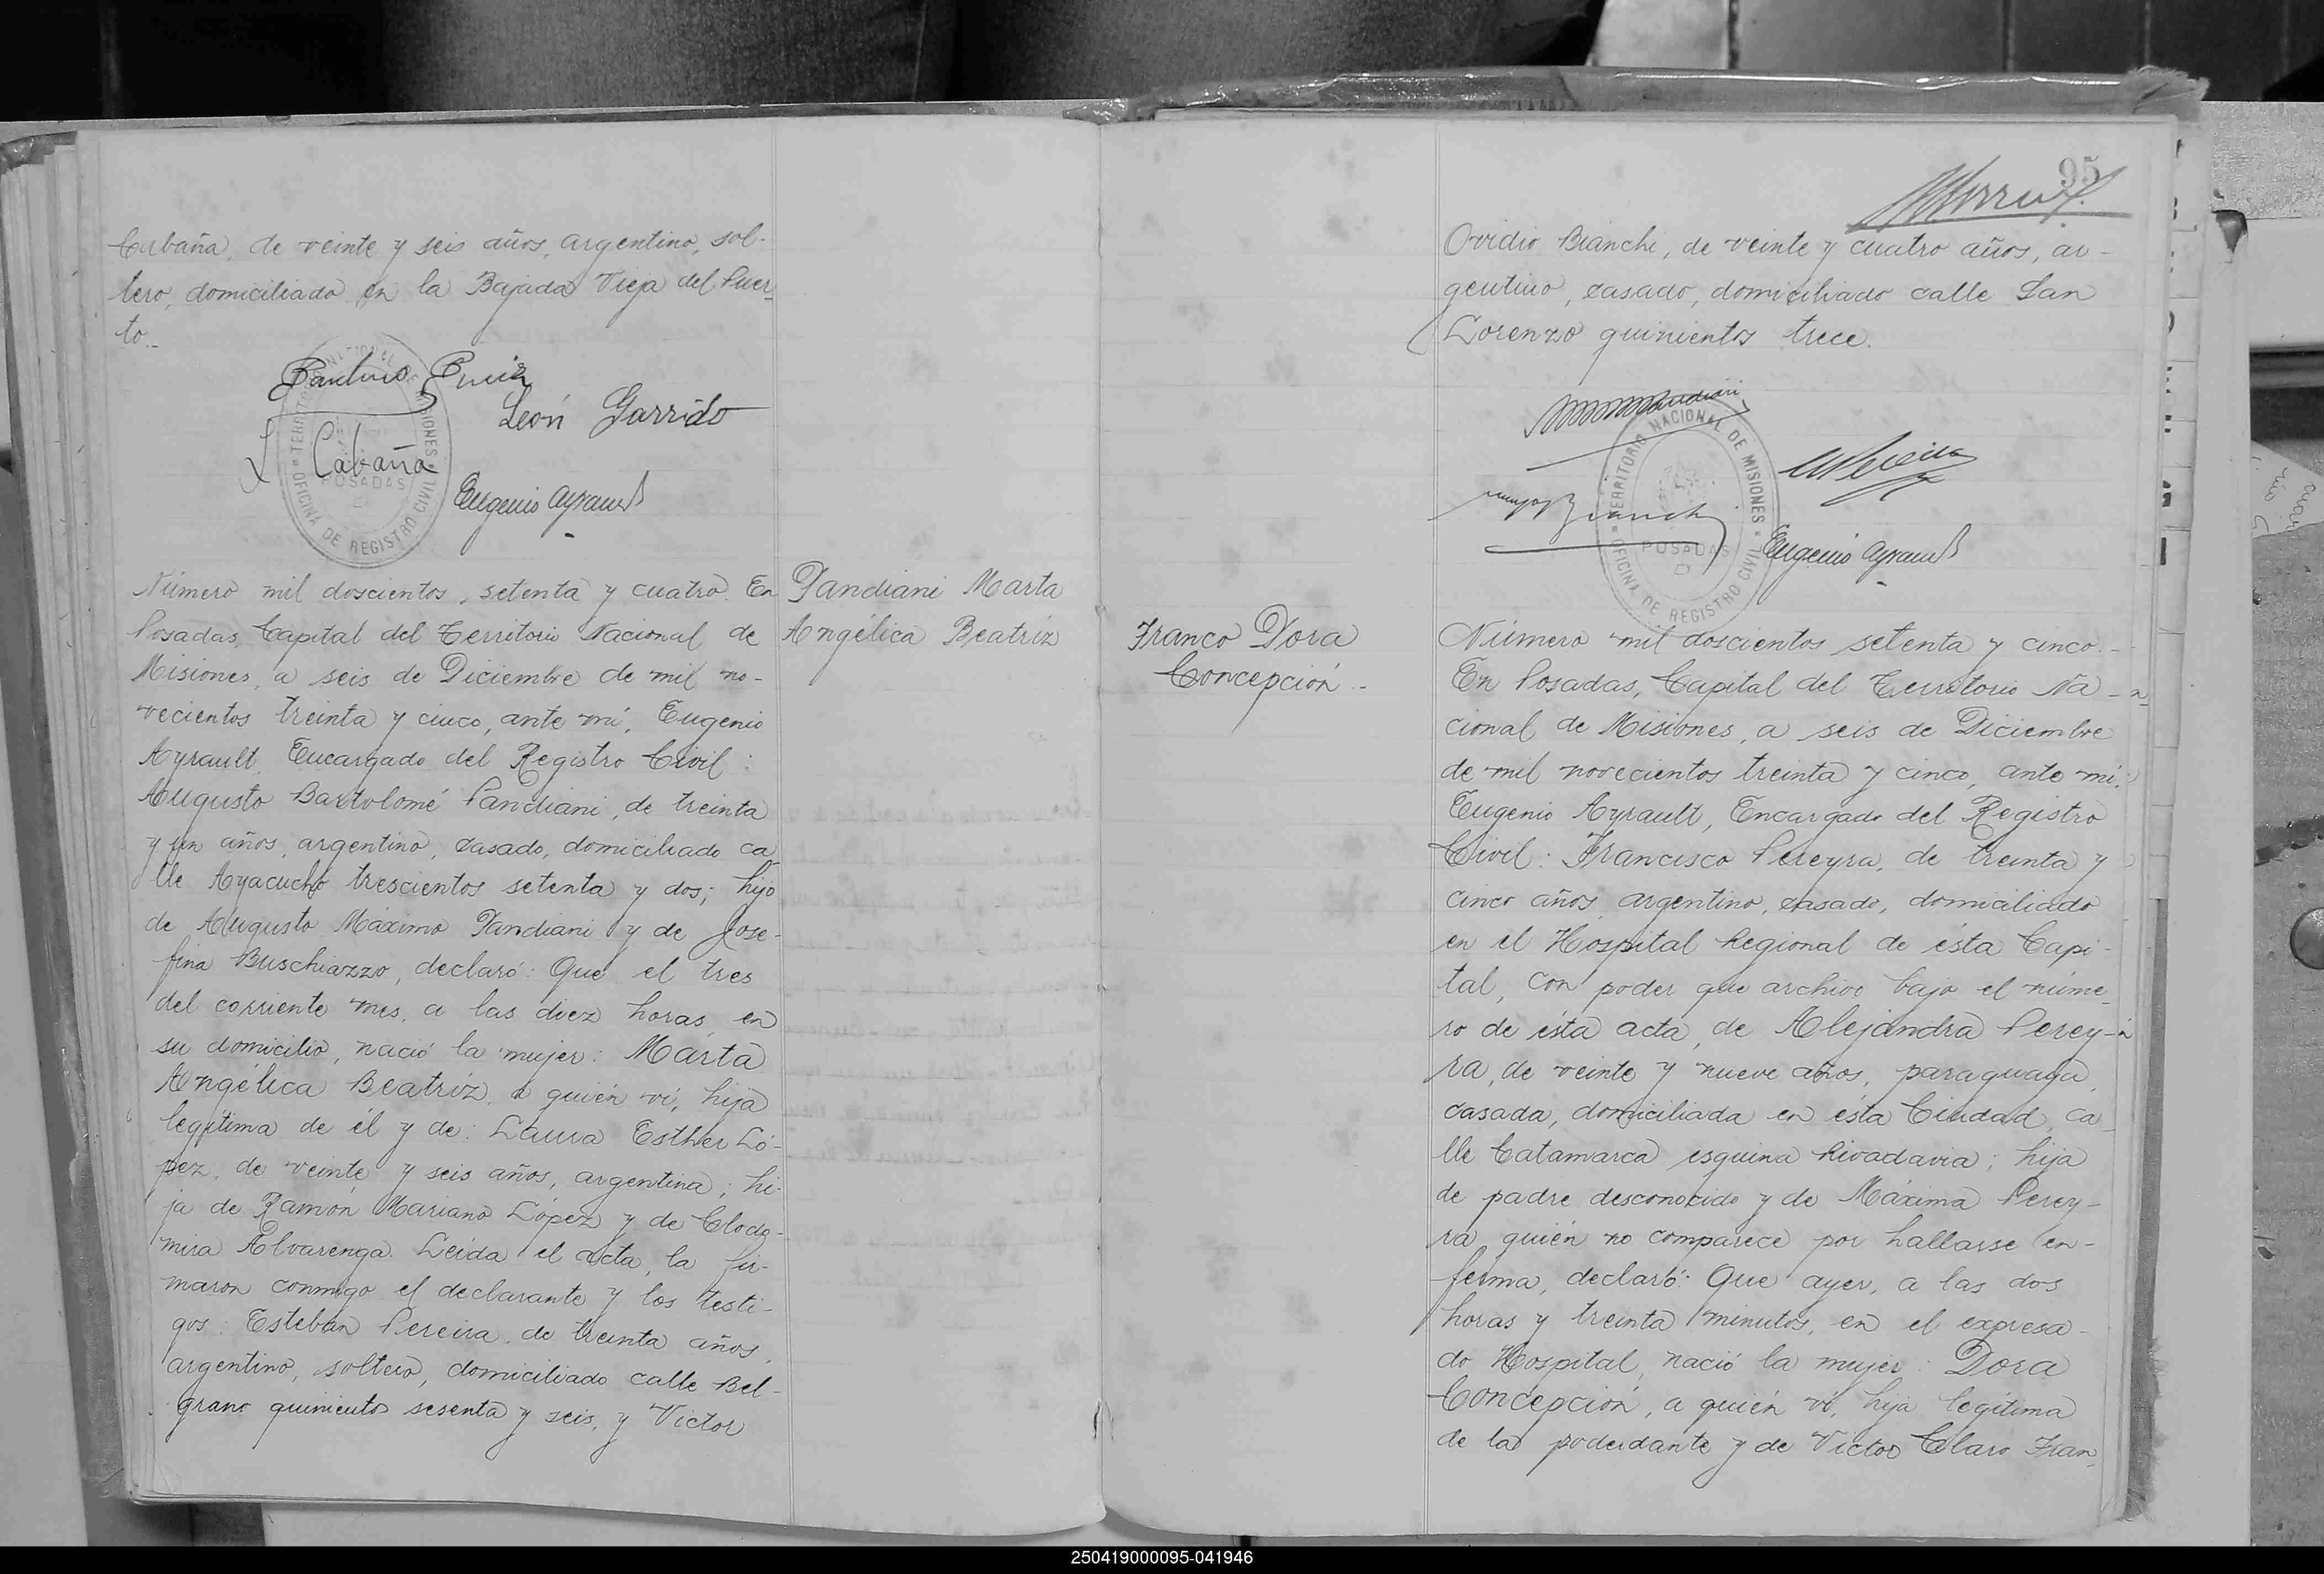 Cabaña, de veinte y seis años, argentino, sol-
tero, domiciliado en la Bajada Vieja del Puer-
to.-
León Garrido
Cabaña
TERRITORIO NACIONAL DE MISIONES
POSADAS
OFICINA DE REGISTRO CIVIL
Eugenio Ayrault
Número mil doscientos setenta y cuatro. En
Posadas, Capital del Territorio Nacional de
Misiones, a seis de Diciembre de mil no-
vecientos treinta y cinco, ante mí, Eugenio
Ayrault, Encargado del Registro Civil:
Augusto Bartolomé Pandiani, de treinta
y un años, argentino, casado, domiciliado ca
lle Ayacucho trescientos setenta y dos; hijo
de Augusto Máximo Pandiani y de Jose-
fina Buschiazzo, declaró: Que el tres
del corriente mes, a las diez horas, en
su domicilio, nació la mujer: Marta
Angélica Beatríz, a quién ví, hija
legítima de él y de: Laura Esther Ló-
pez, de veinte y seis años, argentina; hi-
ja de Ramón Mariano López y de Clodo-
mira Alvarenga. Leída el acta, la fir-
maron conmigo el declarante y los testi-
gos: Esteban Pereira, de treinta años,
argentino, soltero, domiciliado calle Bel-
grano quinientos sesenta y seis, y Victor
Pandiani Marta
Angélica Beatríz
95
Ovidio Bianchi, de veinte y cuatro años, ar-
gentino, casado, domiciliado calle San
Lorenzo quinientos trece.
TERRITORIO NACIONAL DE MISIONES
POSADAS
OFICINA DE REGISTRO CIVIL
Eugenio Ayrault
Franco Dora
Concepción.-
Número mil doscientos setenta y cinco.-
En Posadas, Capital del Territorio Na-
cional de Misiones, a seis de Diciembre
de mil novecientos treinta y cinco, ante mí,
Eugenio Ayrault, Encargado del Registro
Civil: Francisco Pereyra, de treinta y
cinco años, argentino, casado, domiciliado
en el Hospital Regional de ésta Capi-
tal, con poder que archivo bajo el núme-
ro de ésta acta, de Alejandra Perey-
ra, de veinte y nueve años, paraguaya,
casada, domiciliada en ésta Ciudad, ca-
lle Catamarca esquina Rivadavia; hija
de padre desconocido y de Máxima Perey-
ra, quién no comparece por hallarse en-
ferma, declaró: Que ayer, a las dos
horas y treinta minutos, en el expresa-
do Hospital, nació la mujer: Dora
Concepción, a quién ví, hija legítima
de la poderdante y de Victor Claro Fran
250419000095-041946